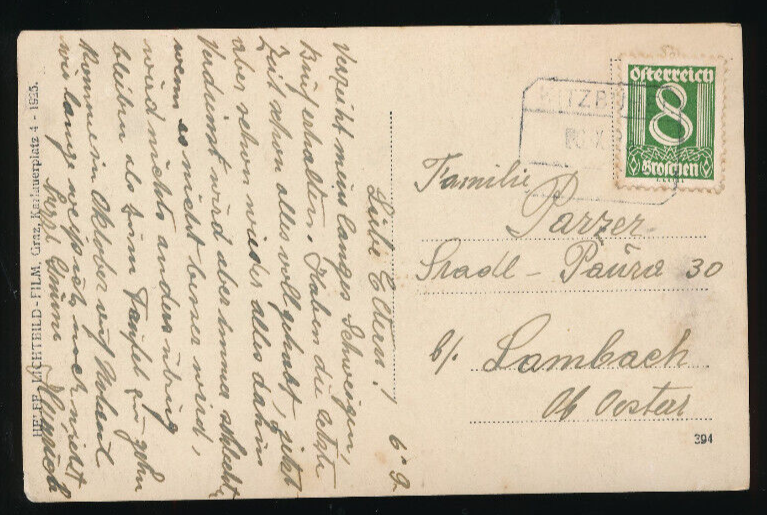 Liebe Eltern! 6.9.
Verzeiht mein langes Schweigen,
Brief erhalten. Haben die letzte
Zeit schon alles voll gehabt, jetzt
aber schon wieder alles dahin
Verdienst wird aber immer schlecht,
wenn es nicht besser wird,
wird nichts anders übrig
bleiben als zum Teufel zu gehn
Komme im Oktober auf Urlaub
wie lange weiß ich noch nicht
Herzl Grüsse Heinrich
HELFF, LICHTBILD-FILM, Graz, Karlauerplatz 4 - 1925.
österreich
8
Groschen
KITZB
Familie
Parzer
Stadl-Paura 30
b/. Lambach
Ob Oester
394